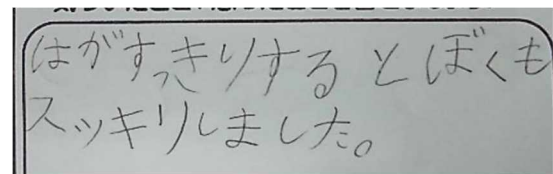 はがすっきりするとぼくも
スッキリしました。